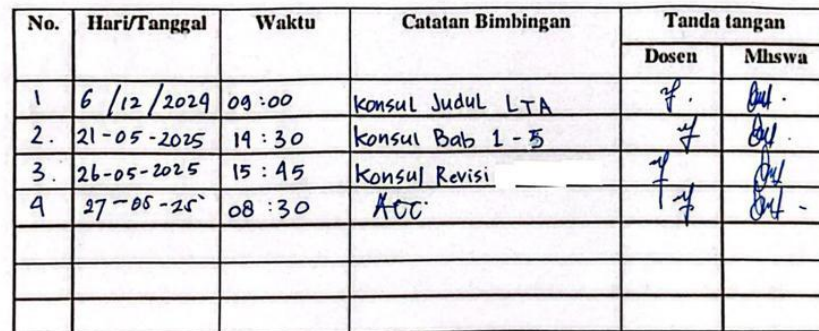 No. Hari/Tanggal Waktu Catatan Bimbingan Tanda tangan
Dosen Mhswa
1 6/12/2024 09:00 Konsul Judul LTA
2. 21-05-2025 14:30 Konsul Bab 1-5
3. 26-05-2025 15:45 Konsul Revisi
4 27-05-25 08:30 Acc